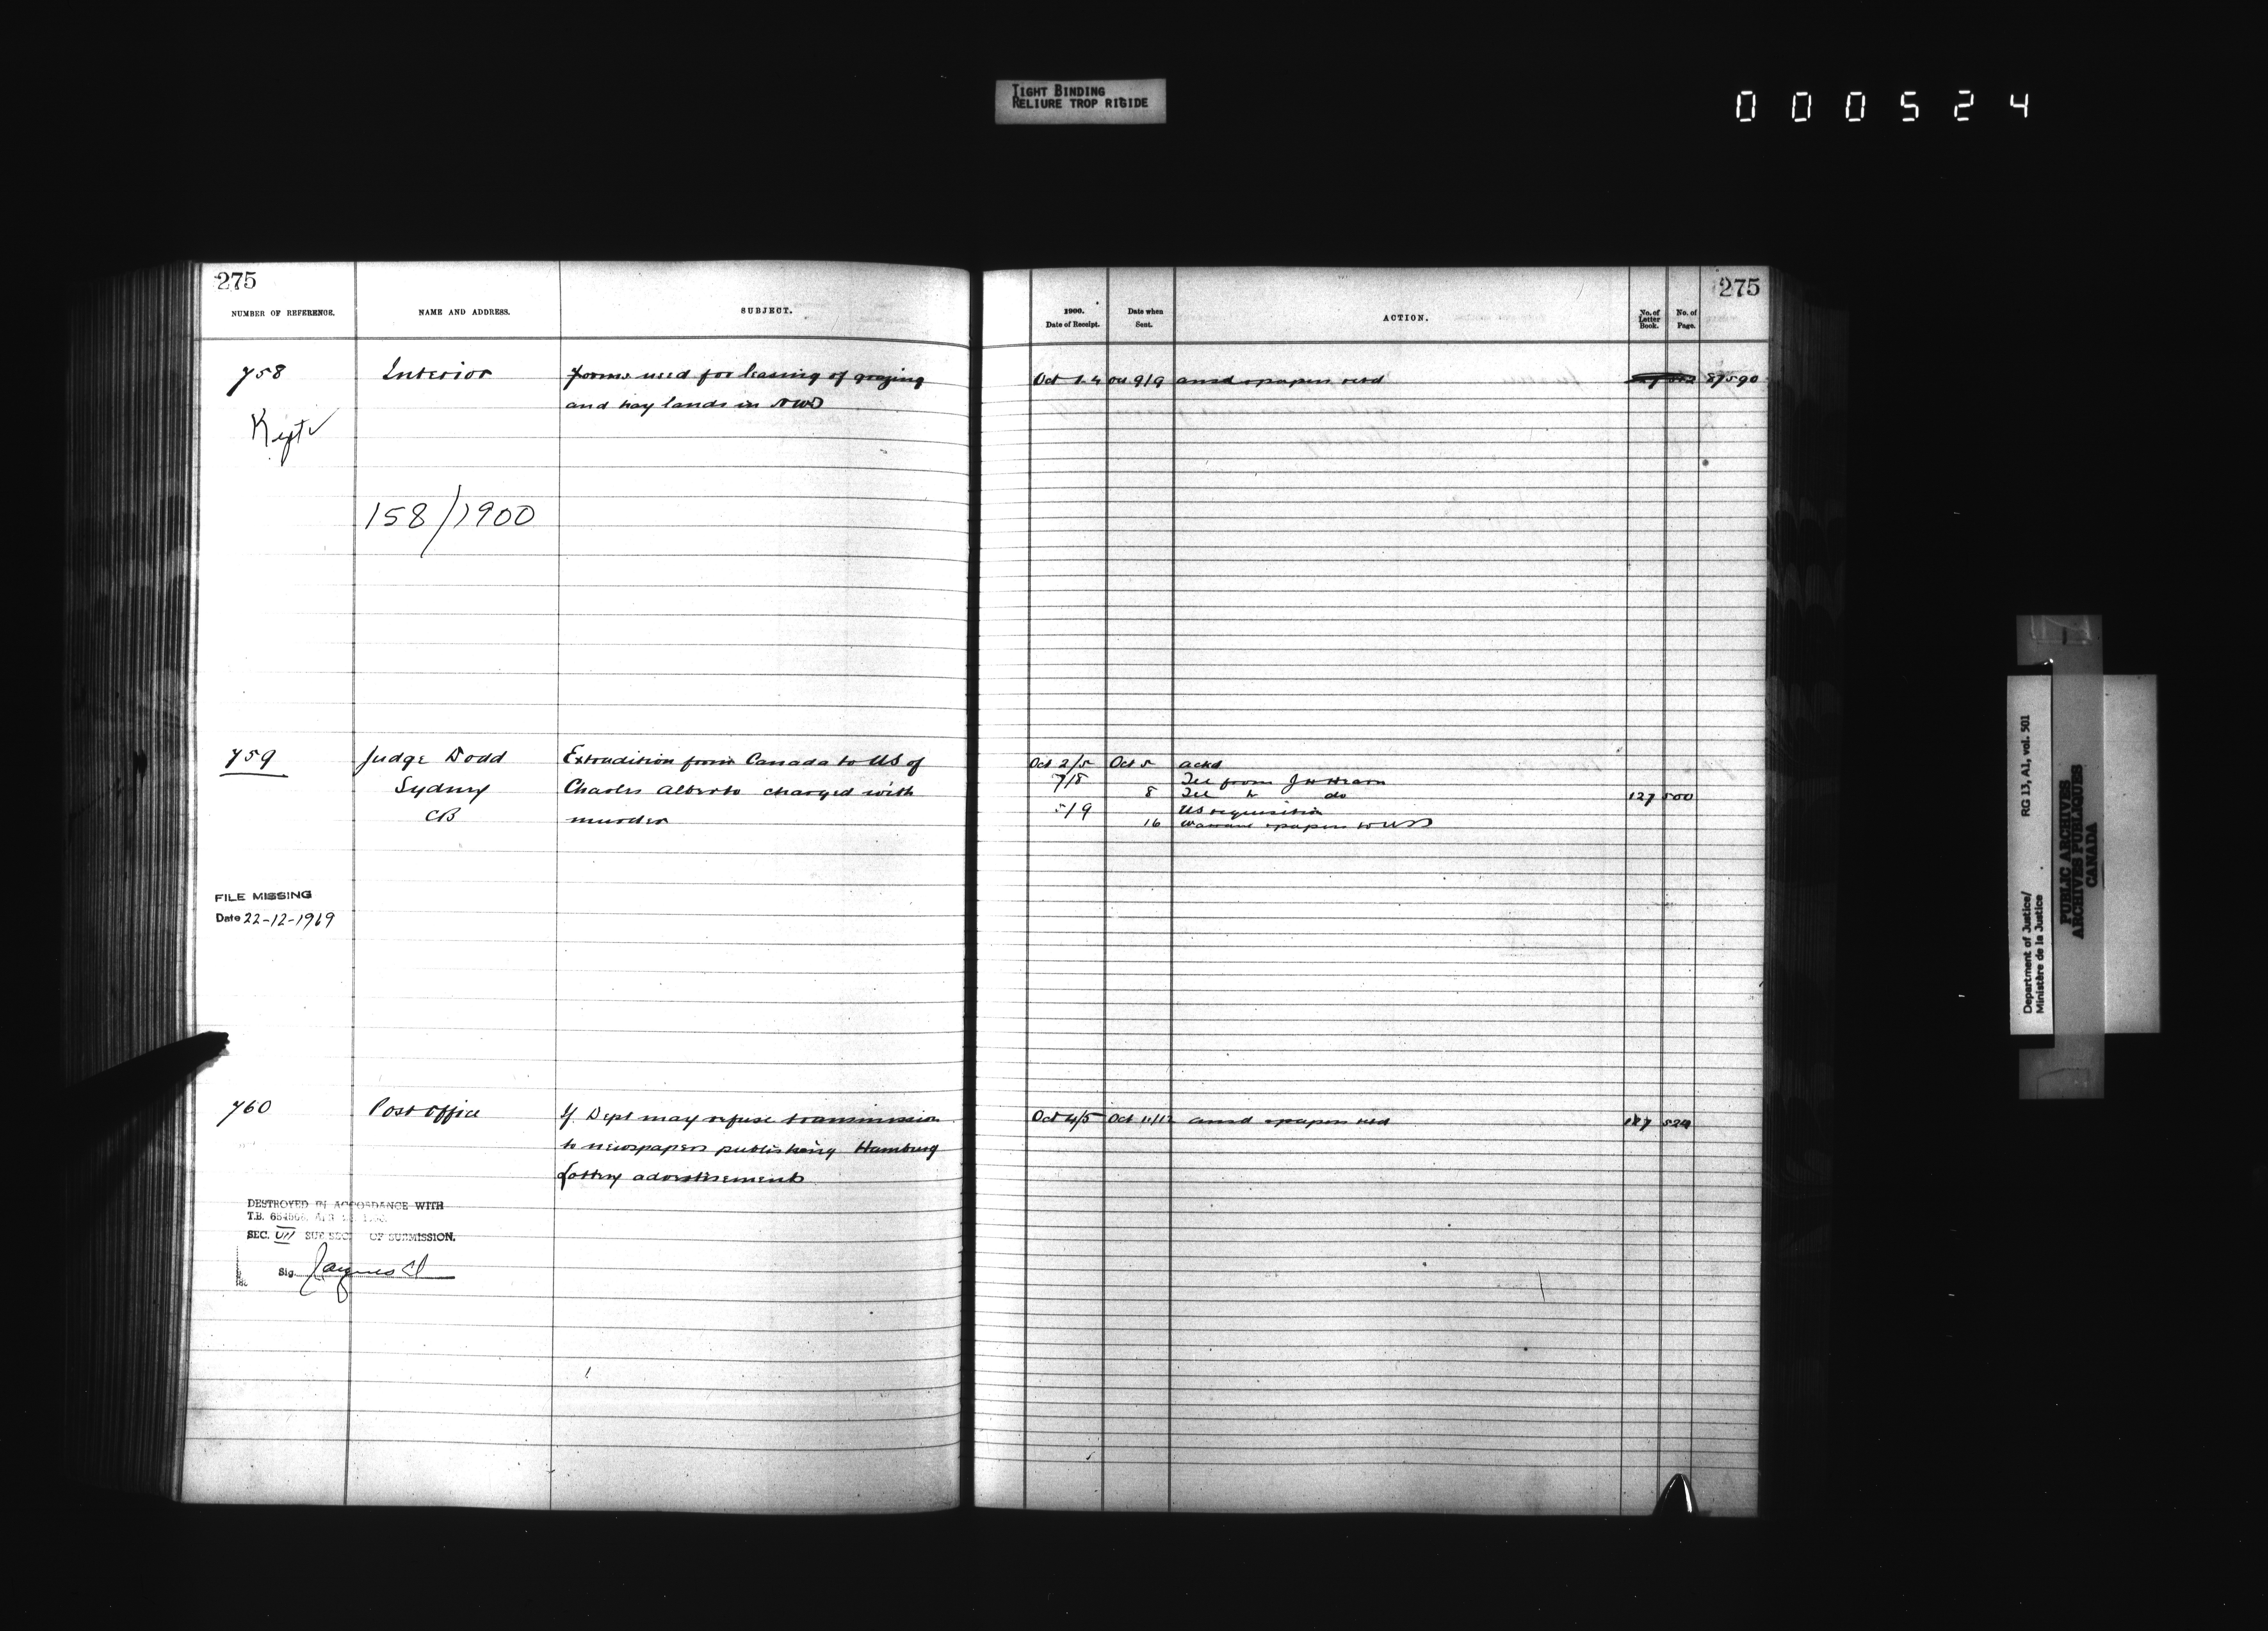 TIGHT BINDING
RELIURE TROP RIGIDE
000524
275
NUMBER OF REFERENCE.
NAME AND ADDRESS.
SUBJECT.
758
Interior
Forms used for leasing of grazing
and hay lands in NWT
Kept
158/1900
759
Judge Dodd
Sydney
CB
Extradition from Canada to US of
Charles Alberto charged with
murder
FILE MISSING
Date 22-12-1969
760
Post office
If Dept may refuse transmission
to newspapers publishing Hamburg
Lottery advertisements
DESTROYED IN ACCORDANCE WITH
T.B.
SEC. VII SUB SEC. OF SUBMISSION.
Sig.
275
1900.
Date of Receipt.
Date when
Sent.
ACTION.
No. of
Letter
Book.
No. of
Page.
Oct 1.4 Oct 9/9 ansd & papers retd 87590
Oct 2/5 Oct 5 ackd
7/8 Tel from J H Hearn
8 Tel to do 127 500
5/9 US requisition
16 Warrant & papers to
Oct 4/5 Oct 11/12 ansd & papers retd 127 524
Department of Justice/
Ministère de la Justice
RG 13, A1, vol. 501
PUBLIC ARCHIVES
ARCHIVES PUBLIQUES
CANADA